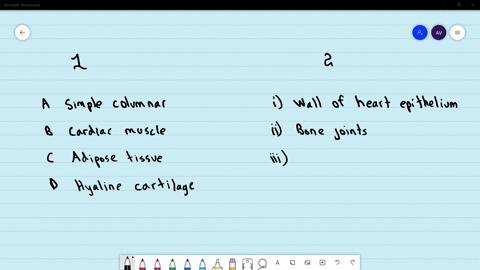 Microsoft Whiteboard
AV
1
2
A Simple columnar
B Cardiac muscle
C Adipose tissue
D Hyaline cartilage
i) Wall of heart epithelium
ii) Bone joints
iii)